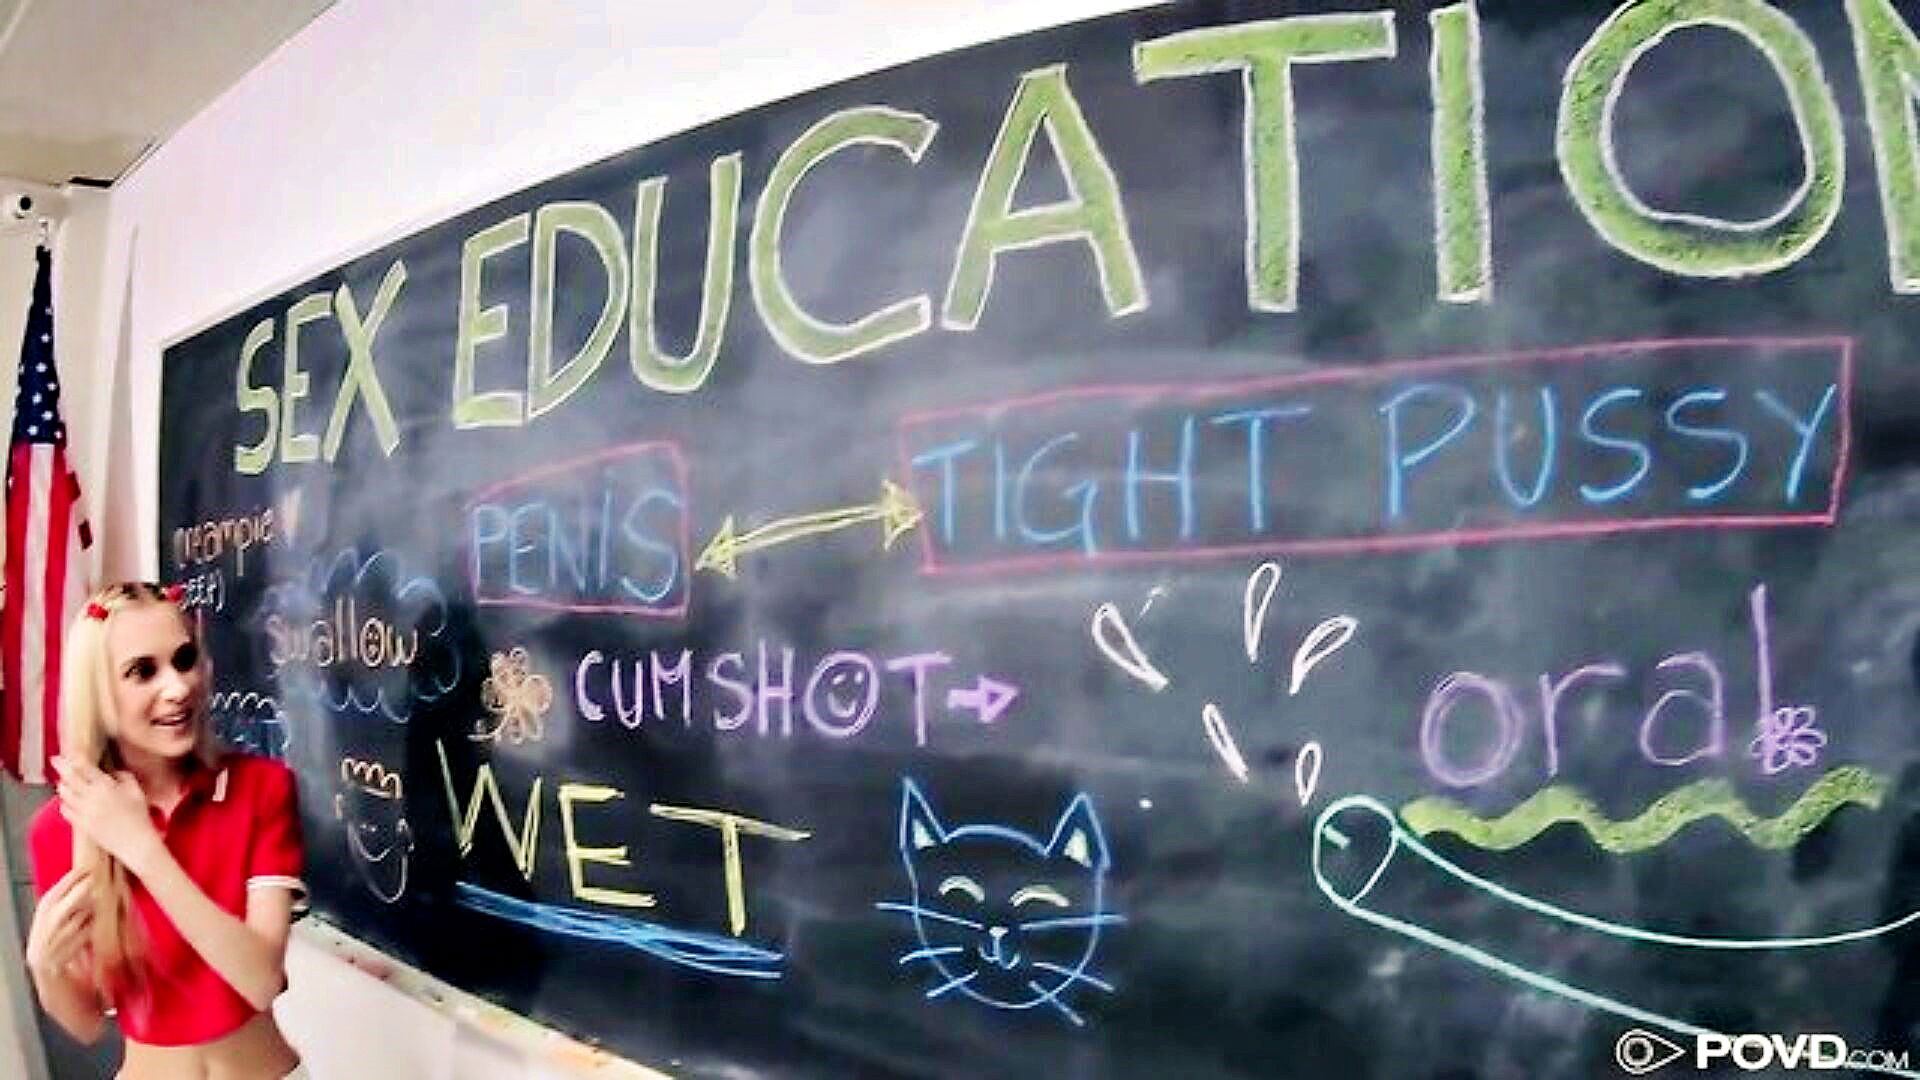 SEX EDUCATION
PENIS TIGHT PUSSY
swallow
CUMSHOT oral
WET
POVD.COM